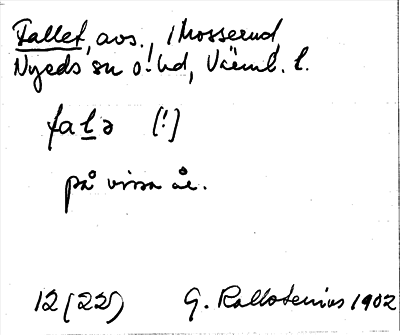 Fallet, avs., i Mosserud
Nyeds sn o. hd, Värml. l.
falə [!]
på vissa åe.
12 (22) G. Kallstenius 1902